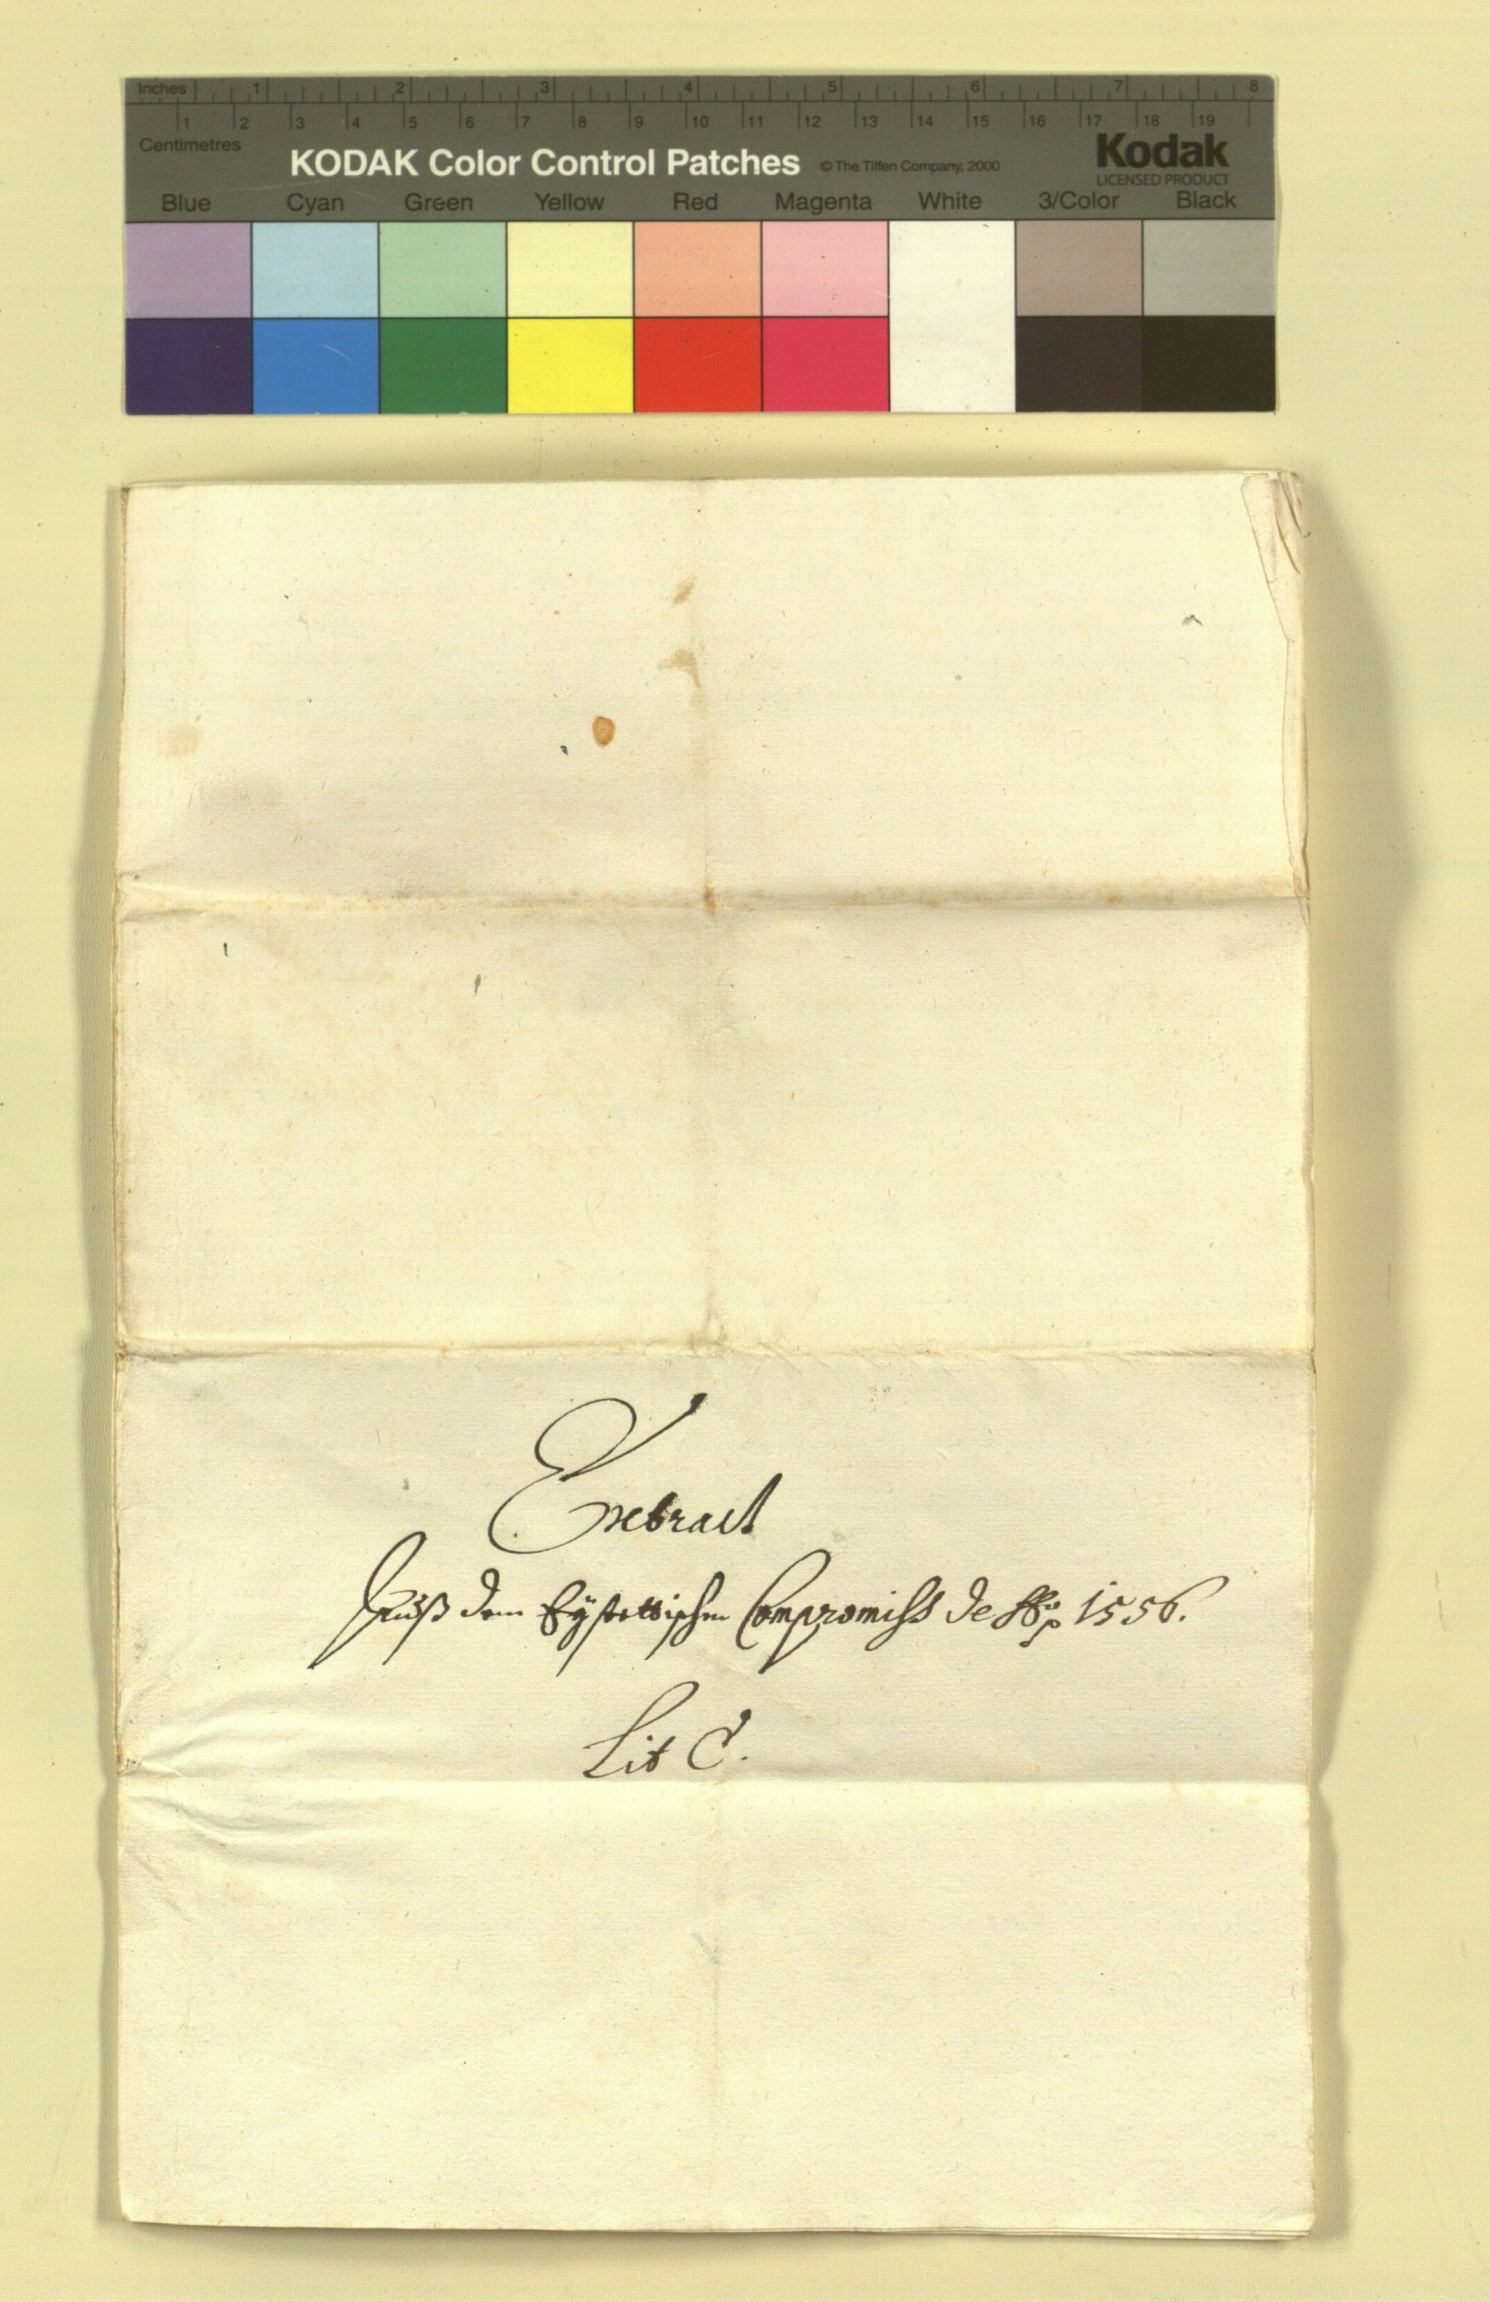 Inches 1 2 3 4 5 6 7 8
1 2 3 4 5 6 7 8 9 10 11 12 13 14 15 16 17 18 19
Centimetres
KODAK Color Control Patches © The Tiffen Company, 2000 Kodak
LICENSED PRODUCT
Blue Cyan Green Yellow Red Magenta White 3/Color Black
Extract
Auß dem Eÿstettischen Compromiss de 1556.
Lit C.